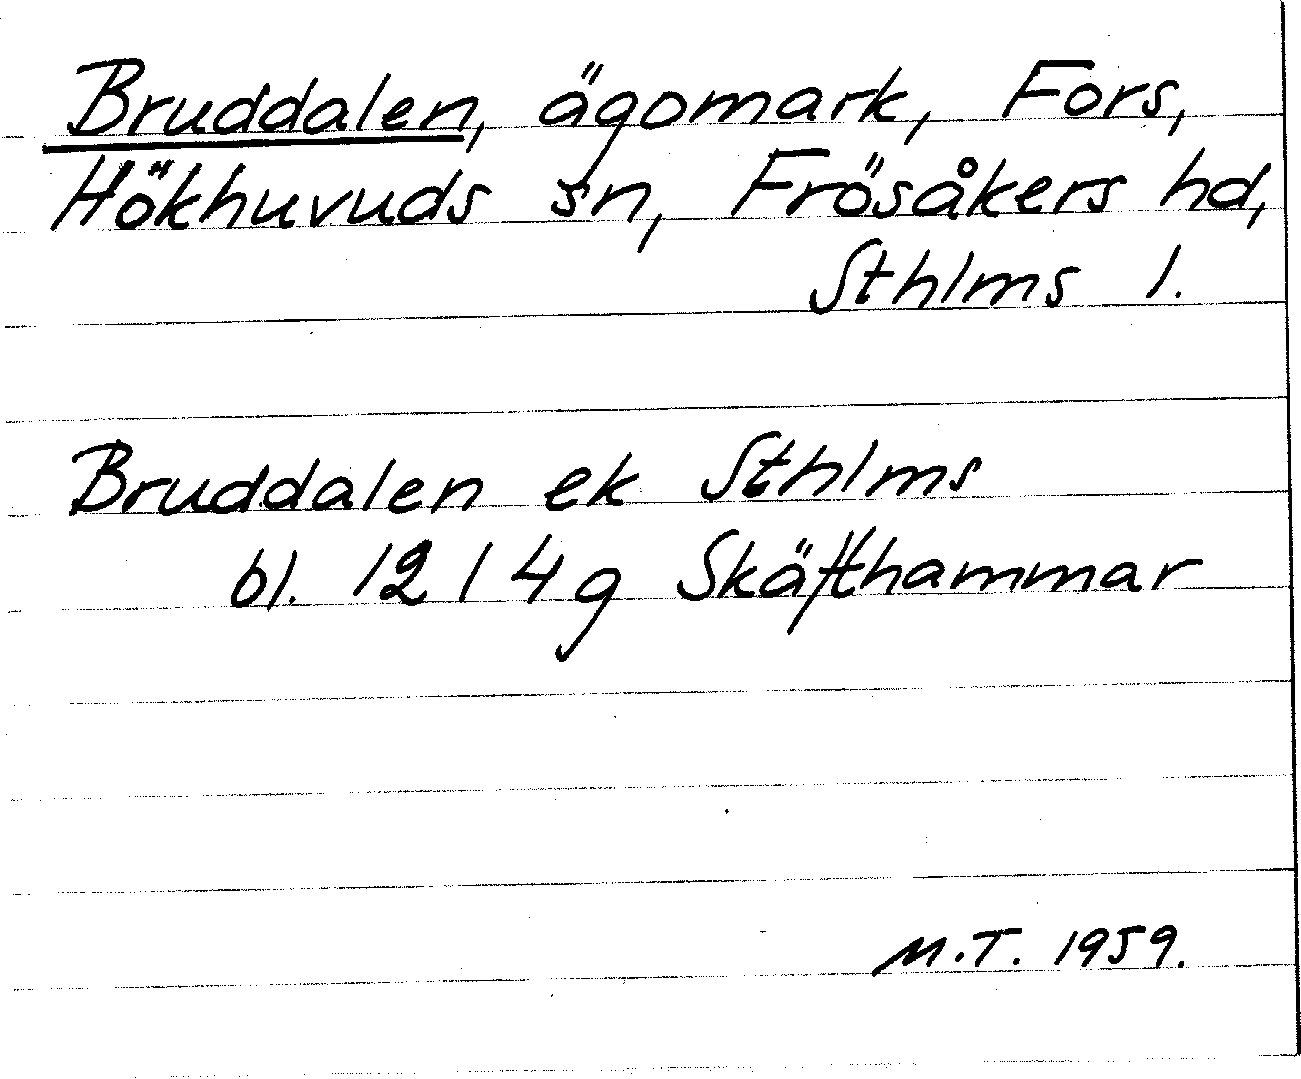 Bruddalen, ägomark, Fors,
Hökhuvuds sn, Frösåkers hd,
Sthlms l.
Bruddalen ek Sthlms
bl. 12 I 4g Skäfthammar
M.T. 1959.